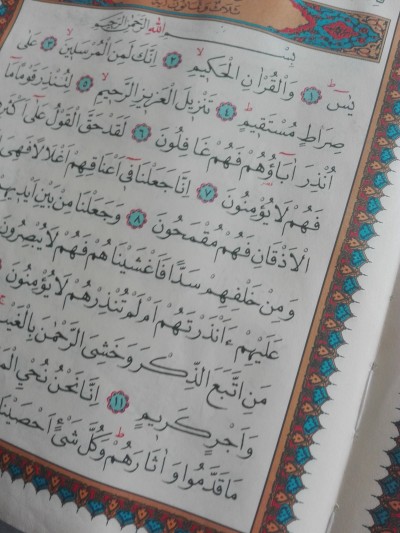 بِسْمِ اللّٰهِ الرَّحْمٰنِ الرَّحِيمِ
يٰسٓ ﴿١﴾ وَالْقُرْاٰنِ الْحَكِيمِ ﴿٢﴾ اِنَّكَ لَمِنَ الْمُرْسَلِينَ ﴿٣﴾ عَلٰى
صِرَاطٍ مُسْتَقِيمٍ ﴿٤﴾ تَنْزِيلَ الْعَزِيزِ الرَّحِيمِ ﴿٥﴾ لِتُنْذِرَ قَوْمًا مَٓا
اُنْذِرَ اٰبَٓاؤُهُمْ فَهُمْ غَافِلُونَ ﴿٦﴾ لَقَدْ حَقَّ الْقَوْلُ عَلٰٓى
فَهُمْ لَا يُؤْمِنُونَ ﴿٧﴾ اِنَّا جَعَلْنَا فِٓي اَعْنَاقِهِمْ اَغْلَالًا فَهِيَ
الْاَذْقَانِ فَهُمْ مُقْمَحُونَ ﴿٨﴾ وَجَعَلْنَا مِنْ بَيْنِ
وَمِنْ خَلْفِهِمْ سَدًّا فَاَغْشَيْنَاهُمْ فَهُمْ لَا يُبْصِرُونَ
عَلَيْهِمْ ءَاَنْذَرْتَهُمْ اَمْ لَمْ تُنْذِرْهُمْ لَا يُؤْمِنُونَ
مَنِ اتَّبَعَ الذِّكْرَ وَخَشِيَ الرَّحْمٰنَ
وَاَجْرٍ كَرِيمٍ ﴿١١﴾ اِنَّا نَحْنُ نُحْيِ
مَا قَدَّمُوا وَاٰثَارَهُمْ وَكُلَّ شَيْءٍ